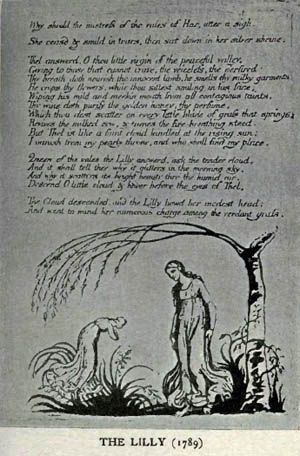 Why should the mistress of the vales of Har, utter a sigh.
She ceasd & smild in tears, then sat down in her silver shrine.
Thel answerd, O thou little virgin of the peaceful valley,
Giving to those that cannot crave, the voiceless, the o'ertired
Thy breath doth nourish the innocent lamb, he smells thy milky garments,
He crops thy flowers, while thou sittest smiling in his face,
Wiping his mild and meekin mouth from all contagious taints.
Thy wine doth purify the golden honey, thy perfume,
Which thou dost scatter on every little blade of grass that springs
Revives the milked cow, & tames the fire-breathing steed.
But Thel is like a faint cloud kindled at the rising sun:
I vanish from my pearly throne, and who shall find my place.
Queen of the vales the Lilly answerd, ask the tender cloud,
And it shall tell thee why it glitters in the morning sky,
And why it scatters its bright beauty thro' the humid air,
Descend O little cloud & hover before the eyes of Thel.
The Cloud descended, and the Lilly bowd her modest head:
And went to mind her numerous charge among the verdant grass.
THE LILLY (1789)